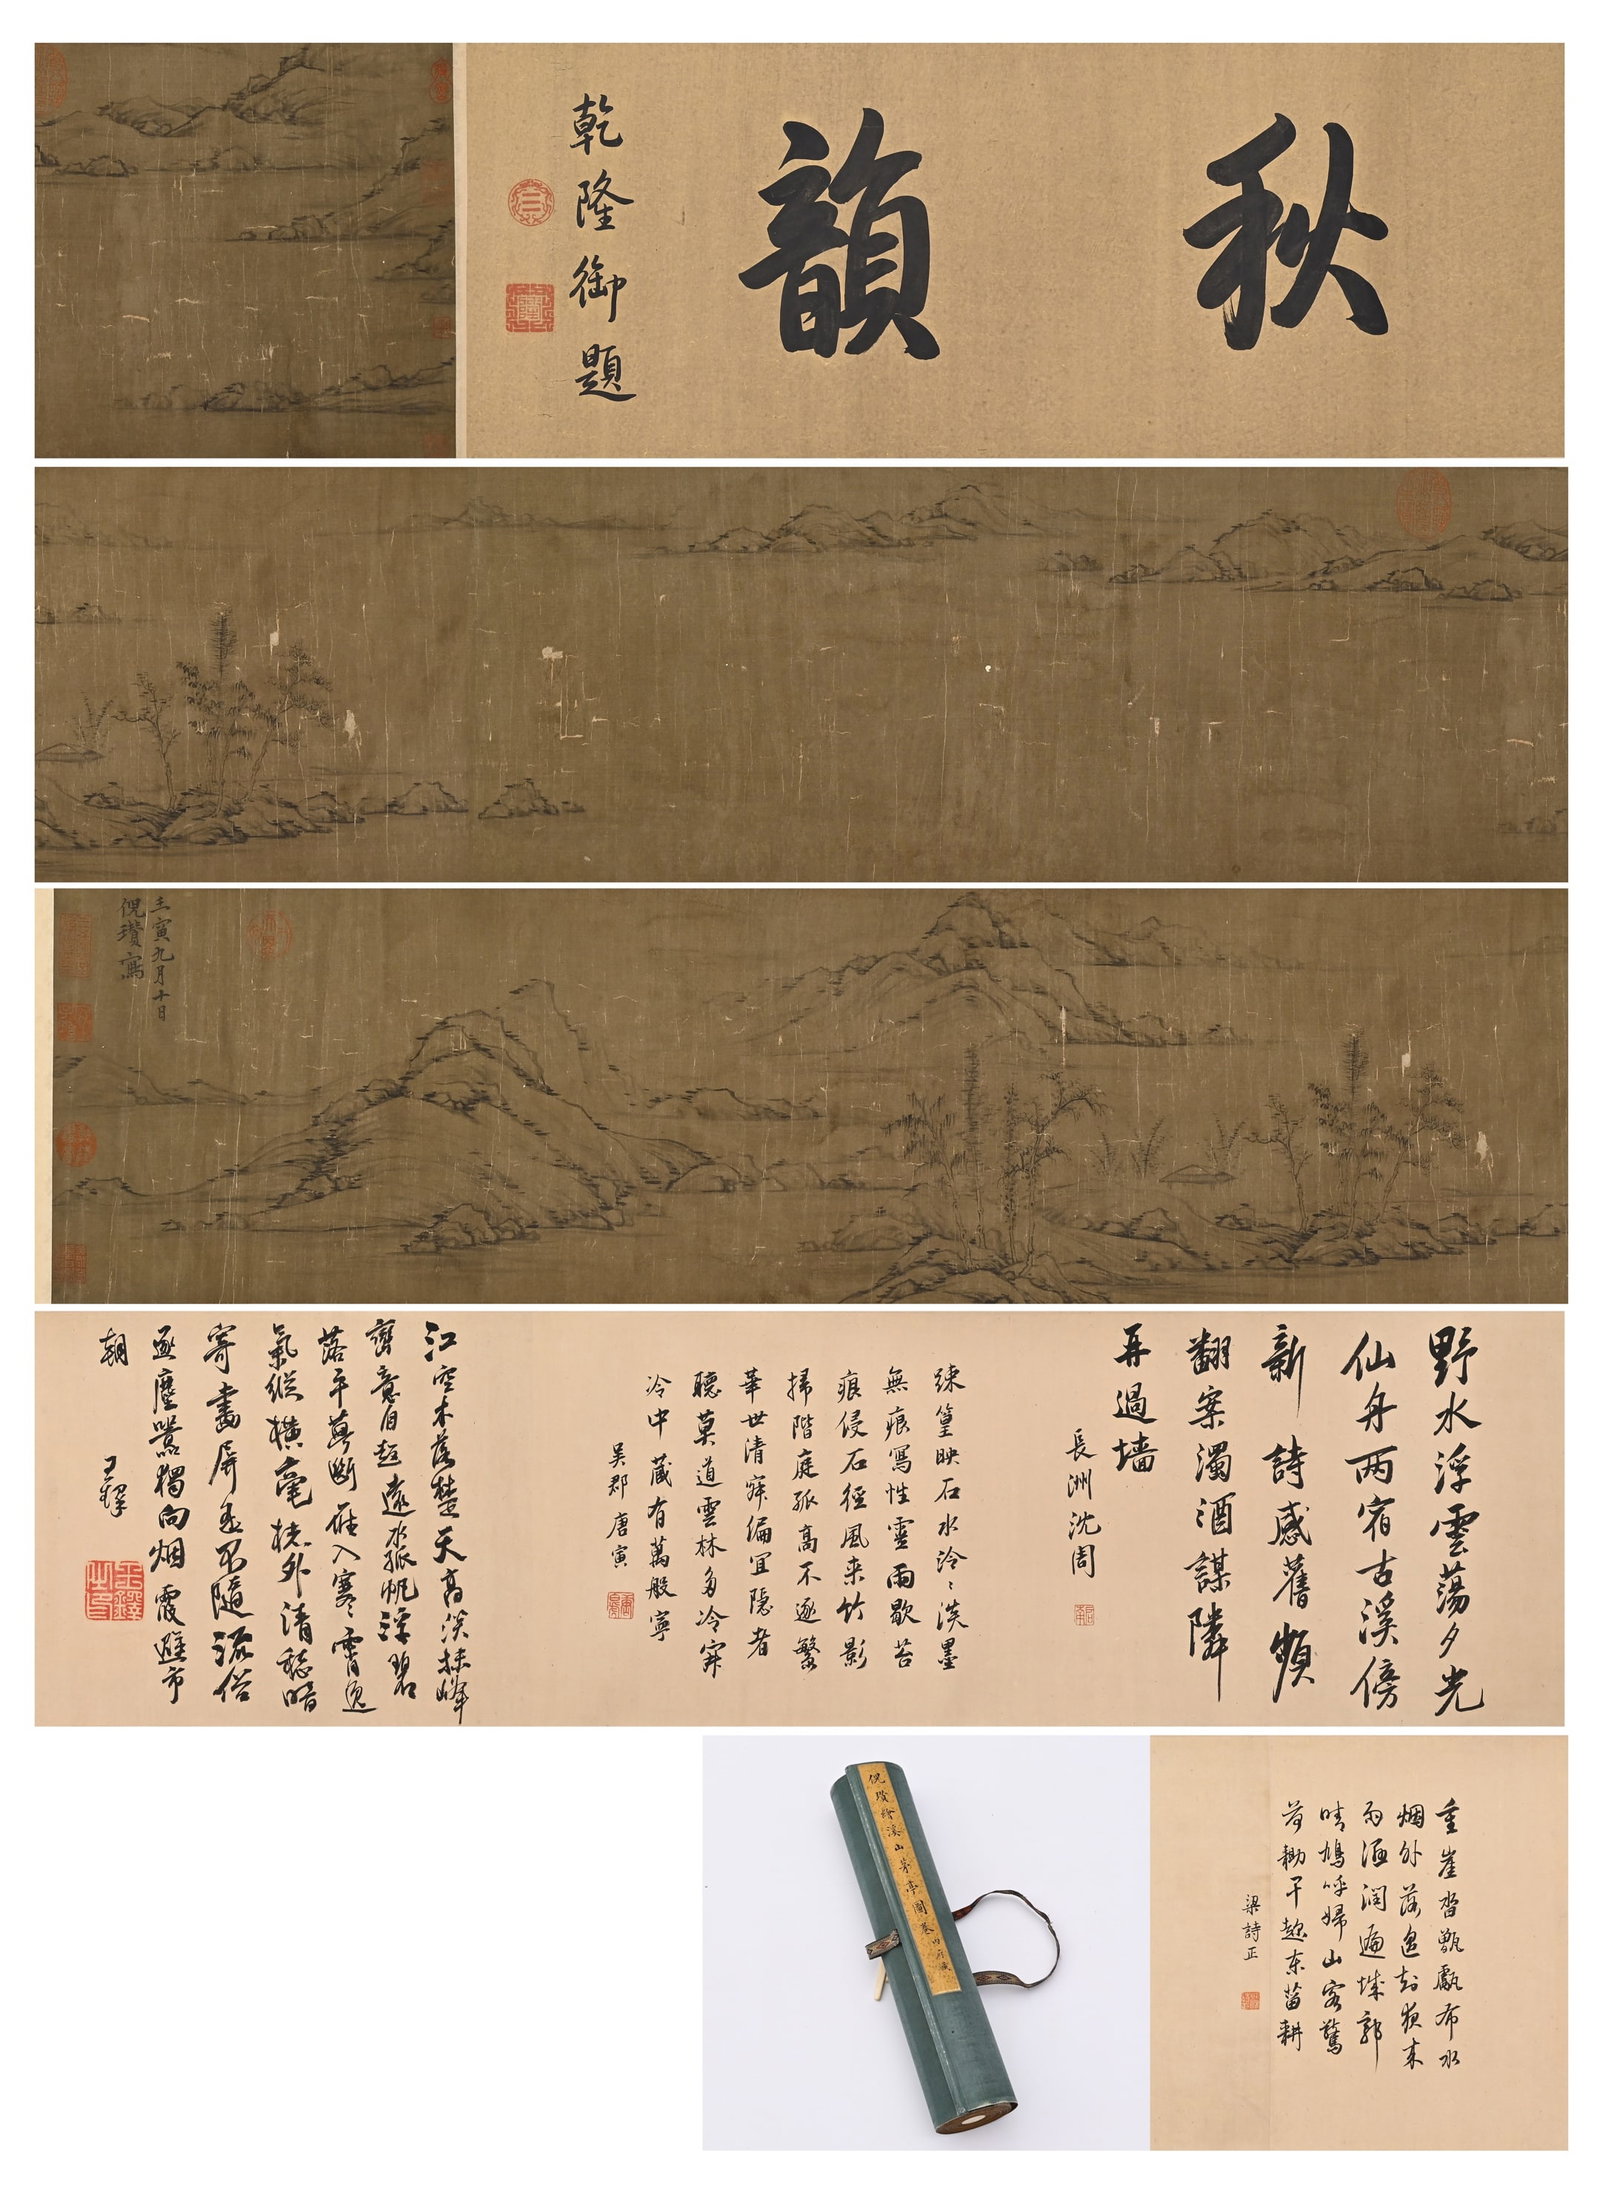 秋韻
乾隆御題
壬寅九月十日
倪瓚寫
野水浮雲蕩夕光
仙舟两宿古溪傍
新詩感舊頻
翻案濁酒謀隣
再過墙
長洲沈周
疎篁映石水泠〻淡墨
無痕寫性靈雨歇苔
痕侵石徑風来竹影
掃階庭孤高不逐繁
華世清寂偏宜隱者
聽莫道雲林多冷寂
冷中藏有萬般寧
吳郡唐寅
江空木落楚天高淡抹峰
巒意自超遠水孤帆浮碧
落平蕪斷雁入寒霄逸
氣縱横毫楮外清愁暗
寄畫屏
不隨流俗
逐塵囂獨向烟霞避市
朝
王鐸
王鐸之印
重崖沓甗甗布水
烟外落邑
夜来
雨洒潤遍城郭
晴鳩呼婦山客驚
荷鋤早趂東菑耕
梁詩正
倪瓚繪溪山茅亭圖卷